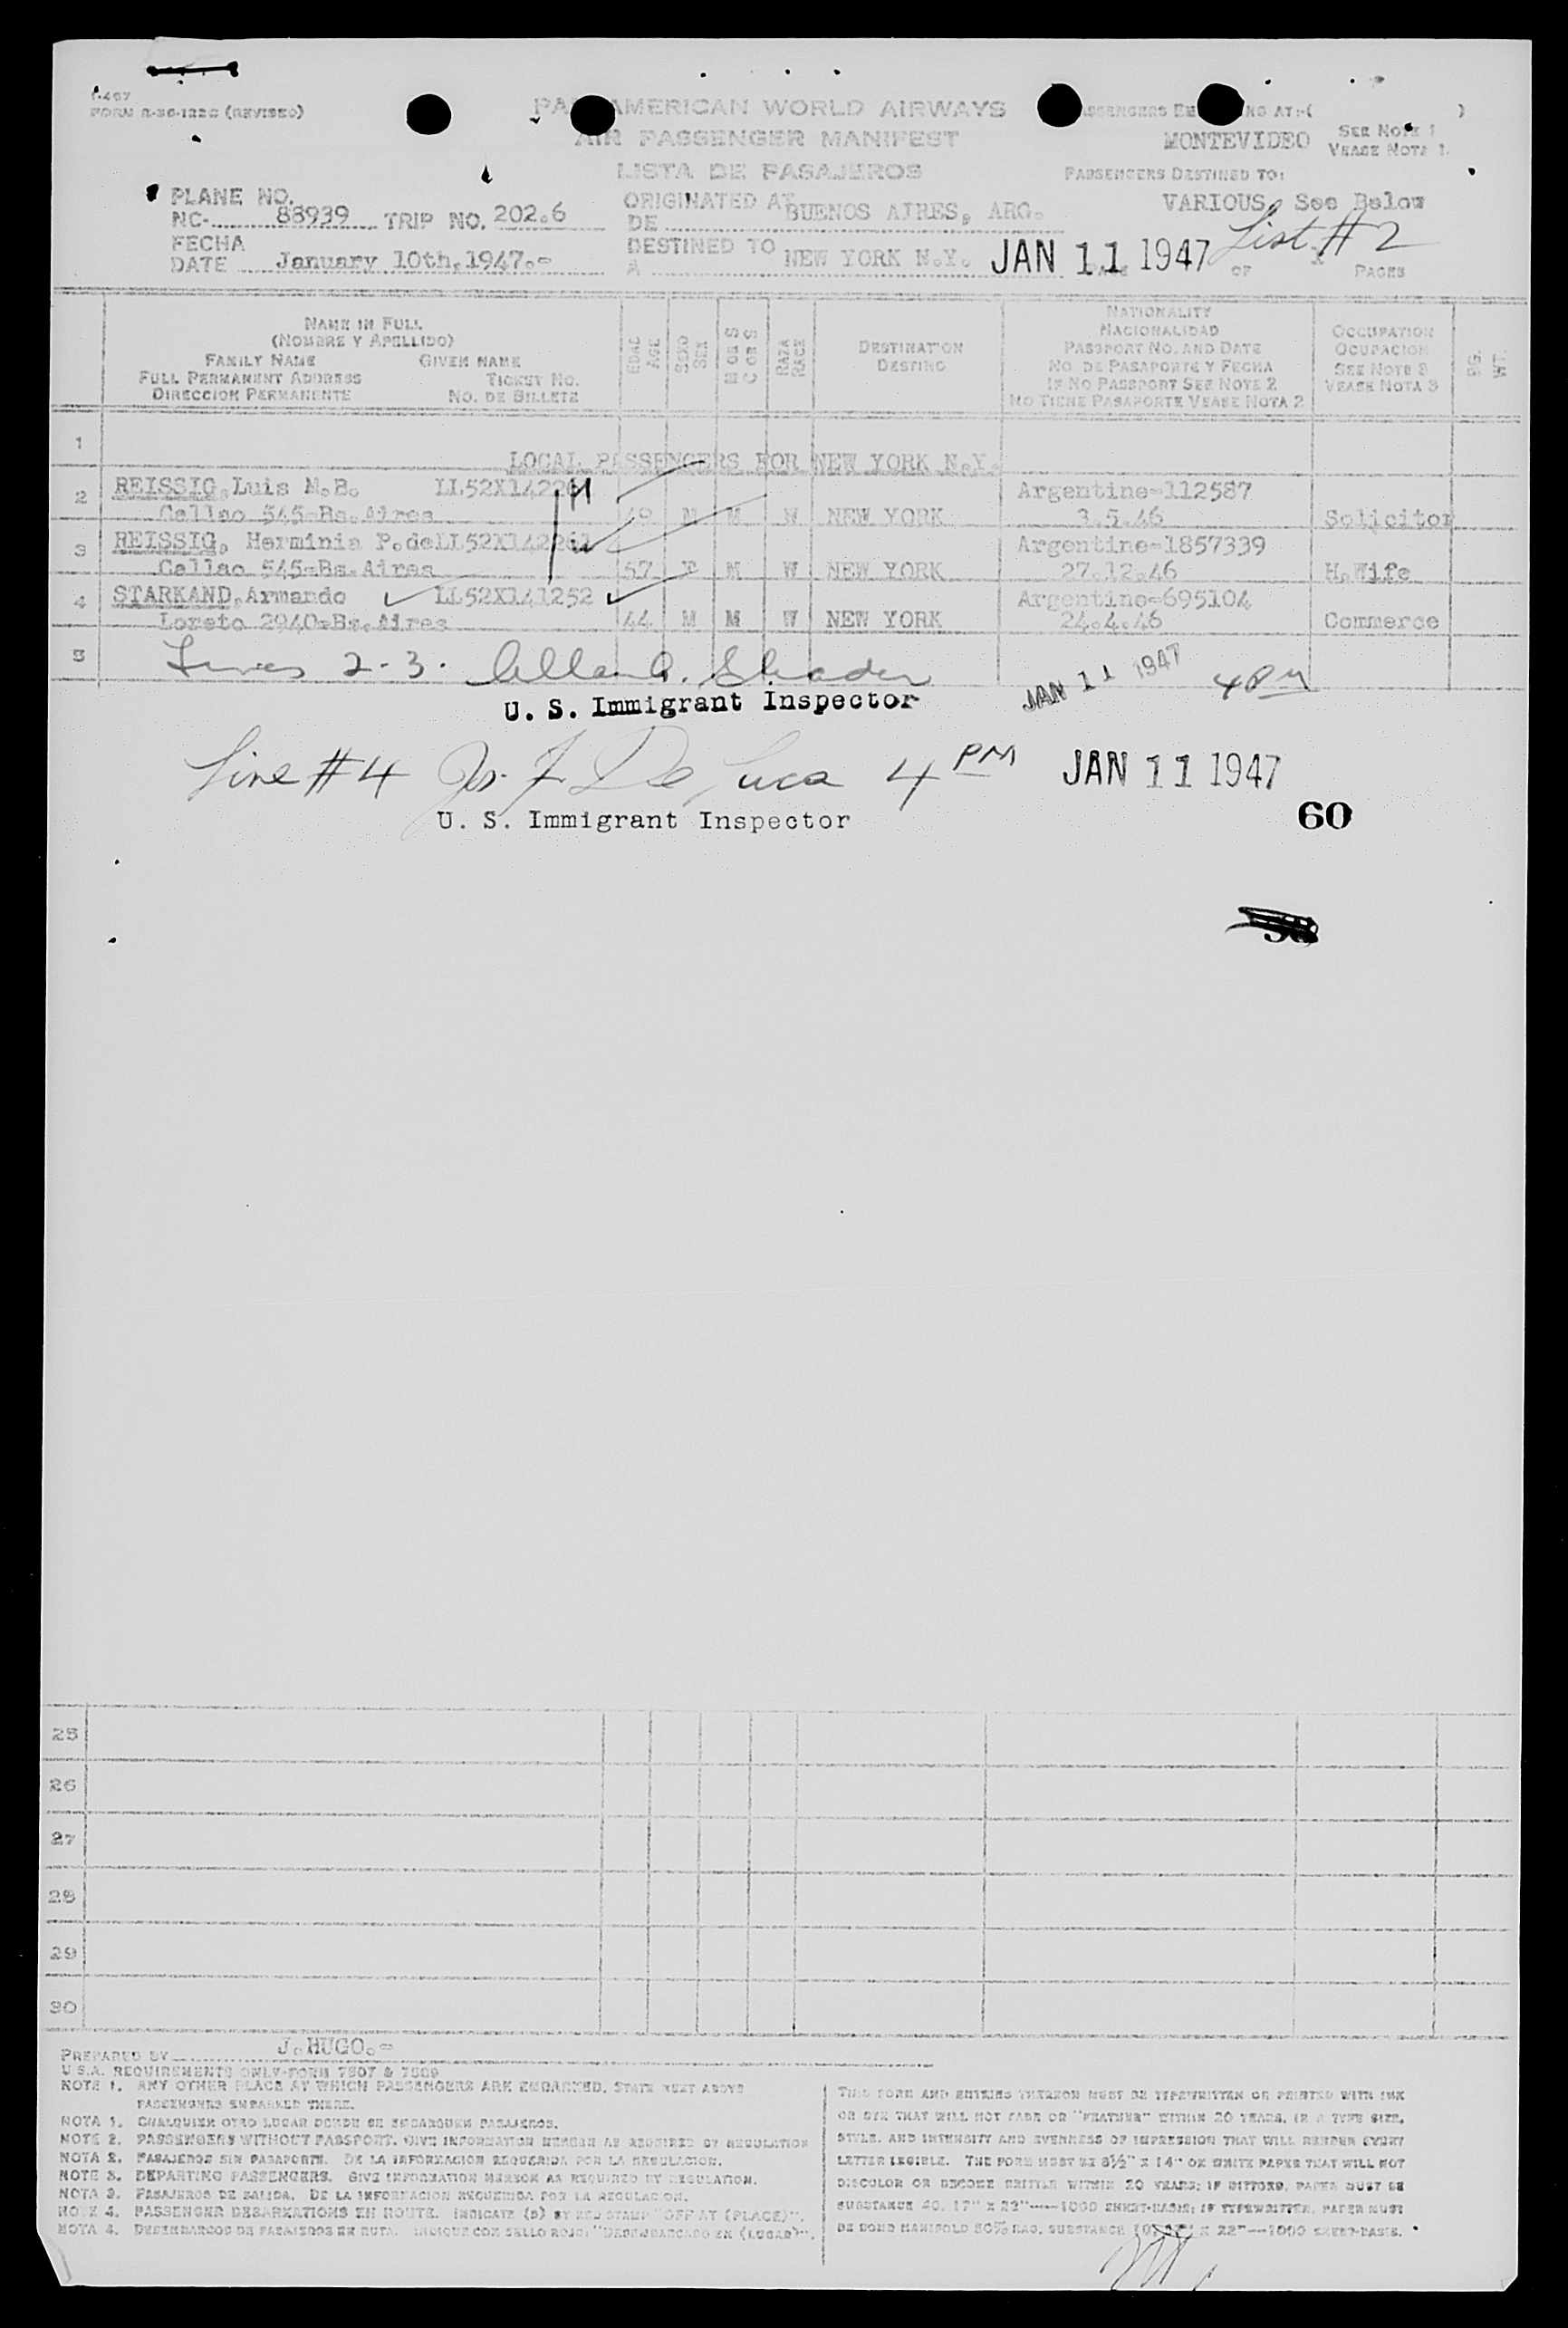 I-467
FORM R-36-122C (REVISED)
PAN AMERICAN WORLD AIRWAYS
AIR PASSENGER MANIFEST
LISTA DE PASAJEROS
MONTEVIDEO
SEE NOTE 1
VEASE NOTA 1.
PASSENGERS DESTINED TO:
VARIOUS, See Below
List #2
PLANE NO.
NC- 88939 TRIP NO. 202.6
FECHA
DATE January 10th,1947.=
ORIGINATED AT BUENOS AIRES, ARG.
DE
DESTINED TO NEW YORK N.Y.
A
JAN 11 1947
OF PAGES
NAME IN FULL
(NOMBRE Y APELLIDO)
FAMILY NAME GIVEN NAME
FULL PERMANENT ADDRESS TICKET NO.
DIRECCION PERMANENTE NO. DE BILLETE
EDAD AGE
SEXO SEX
M OR S
C O S
RAZA RACE
DESTINATION
DESTINO
NATIONALITY
NACIONALIDAD
PASSPORT NO. AND DATE
NO. DE PASAPORTE Y FECHA
IF NO PASSPORT SEE NOTE 2
NO TIENE PASAPORTE VEASE NOTA 2
OCCUPATION
OCUPACION
SEE NOTE 3
VEASE NOTA 3
1
LOCAL PASSENGERS FOR NEW YORK N.Y.
2 REISSIG,Luis M.B. Argentine=112587
Callao 545-Bs.Aires M M W NEW YORK 3.5.46 Solicitor
3 REISSIG, Herminia P.de LL52X142261 Argentine=1857339
Callao 545-Bs.Aires 57 F M W NEW YORK 27.12.46 H.Wife
4 STARKAND,Armando LL52X141252 Argentine=695104
Loreto 2940-Bs.Aires 44 M M W NEW YORK 24.4.46 Commerce
5
Lines 2-3. Allan A. Shader
U. S. Immigrant Inspector
JAN 11 1947 4 PM
Line #4 Jos. F. De Luca 4 PM JAN 11 1947
U. S. Immigrant Inspector
60
25
26
27
28
29
30
PREPARED BY J.HUGO.=
U.S.A. REQUIREMENTS ONLY-FORM 7507 & 7509
NOTE 1. ANY OTHER PLACE AT WHICH PASSENGERS ARE EMBARKED, STATE NEXT ABOVE
PASSENGERS EMBARKED THERE.
NOTA 1. CUALQUIER OTRO LUGAR DONDE SE EMBARQUEN PASAJEROS.
NOTE 2. PASSENGERS WITHOUT PASSPORT. GIVE INFORMATION HEREON AS REQUIRED BY REGULATION
NOTA 2. PASAJEROS SIN PASAPORTE. DE LA INFORMACION REQUERIDA POR LA REGULACION.
NOTE 3. DEPARTING PASSENGERS. GIVE INFORMATION HEREON AS REQUIRED BY REGULATION.
NOTA 3. PASAJEROS DE SALIDA. DE LA INFORMACION REQUERIDA POR LA REGULACION.
NOTE 4. PASSENGER DEBARKATIONS EN ROUTE. INDICATE (D) BY RED STAMP "OFF AT (PLACE)".
NOTA 4. DESEMBARCOS DE PASAJEROS EN RUTA. INDIQUE CON SELLO ROJO: "DESEMBARCADO EN (LUGAR)".
THIS FORM AND ENTRIES THEREON MUST BE TYPEWRITTEN OR PRINTED WITH INK
OR DYE THAT WILL NOT FADE OR "FEATHER" WITHIN 20 YEARS, IN A TYPE SIZE,
STYLE, AND INTENSITY AND EVENNESS OF IMPRESSION THAT WILL RENDER EVERY
LETTER LEGIBLE. THE FORM MUST BE 8½" X 14" ON WHITE PAPER THAT WILL NOT
DISCOLOR OR BECOME BRITTLE WITHIN 20 YEARS; IF DITTOED, PAPER MUST BE
SUBSTANCE 40, 17" X 22"—1000 SHEET-BASIS; IF TYPEWRITTEN, PAPER MUST
BE BOND MANIFOLD 50% RAG, SUBSTANCE X 22"—1000 SHEET-BASIS.